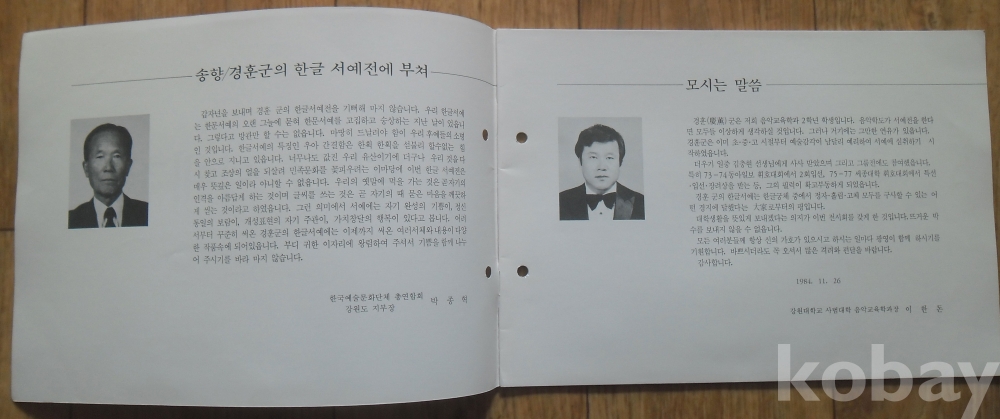 송향/경훈군의 한글 서예전에 부쳐
갑자년을 보내며 경훈 군의 한글서예전을 기뻐해 마지 않습니다. 우리 한글서예
는 한문서예의 오랜 그늘에 묻혀 한문서예를 고집하고 숭상하는 지난 날이 있습니
다. 그렇다고 방관만 할 수는 없읍니다. 마땅히 드날려야 함이 우리 후예들의 소명
인 것입니다. 한글서예의 특징인 우아 간결함은 한획 한획을
을 안으로 지니고 있읍니다. 너무나도 값진 우리 유산이기에 더구나 우리 것을 다
시 찾고 조상의 얼을 되살려 민족문화를 꽃피우려는 이마당에 이번 한글 서예전은
배우 뜻깊은 일이라 아니할 수 없읍니다. 우리의 옛말에 먹을 가는 것은 곧 자기의
인격을 아름답게 하는 것이며 글씨를 쓰는 것은, 곧 자기의 때 묻은 마음을 깨끗하
게 씻는 것이라고 하였읍니다. 그런 의미에서 서예에는 자기 완성의 기쁨이, 정신
통일의 보람이, 개성표현의 자기 주관이, 가치창달의 행복이 있다고 봅니다. 어려
서부터 꾸준히 써온 경훈군의 한글서예에는 이제까지 써온 여러서체와 내용이 다양
한 작품속에 되어있읍니다. 부디 귀한 이자리에 왕림하여 주셔서 기쁨을 함께 나누
어 주시기를 바라 마지 않습니다.
한국예술문화단체 총연합회
강원도 지부장
박 종 혁
모시는 말씀
경훈(慶薰) 군은 저희 음악교육학과 2학년 학생입니다. 음악학도가 서예전을 한다
면 모두들 이상하게 생각하실 것입니다. 그러나 거기에는 그만한 연유가 있읍니다.
경훈군은 이미 초·중·고 시절부터 예술감각이 남달리 예리하여 서예에 심취하기 시
작하였읍니다.
더우기 일중 김충현 선생님에게 사사 받았으며 그리고 그룹전에도 참여했읍니다.
특히 73~74동아일보 휘호대회에서 2회입선, 75~77 세종대왕 휘호대회에서 특선
·입선·장려상을 받는 등, 그의 필력이 확고부동하게 되었읍니다.
경훈 군의 한글서예는 한글궁체 중에서 정자·흘림·고체 모두를 구사할 수 있는 어
떤 경지에 달했다는 大家로부터의 평입니다.
대학생활을 뜻있게 보내겠다는 의지가 이번 전시회를 갖게 한 것입니다. 뜨거운 박
수를 보내지 않을 수 없읍니다.
모든 여러분들께 항상 신의 가호가 있으시고 하시는 일마다 광명이 함께 하시기를
기원합니다. 바쁘시더라도 꼭 오셔서 많은 격려와 편달을 바랍니다.
감사합니다.
1984. 11. 26
강원대학교 사범대학 음악교육학과장 이 한 돈
kobay